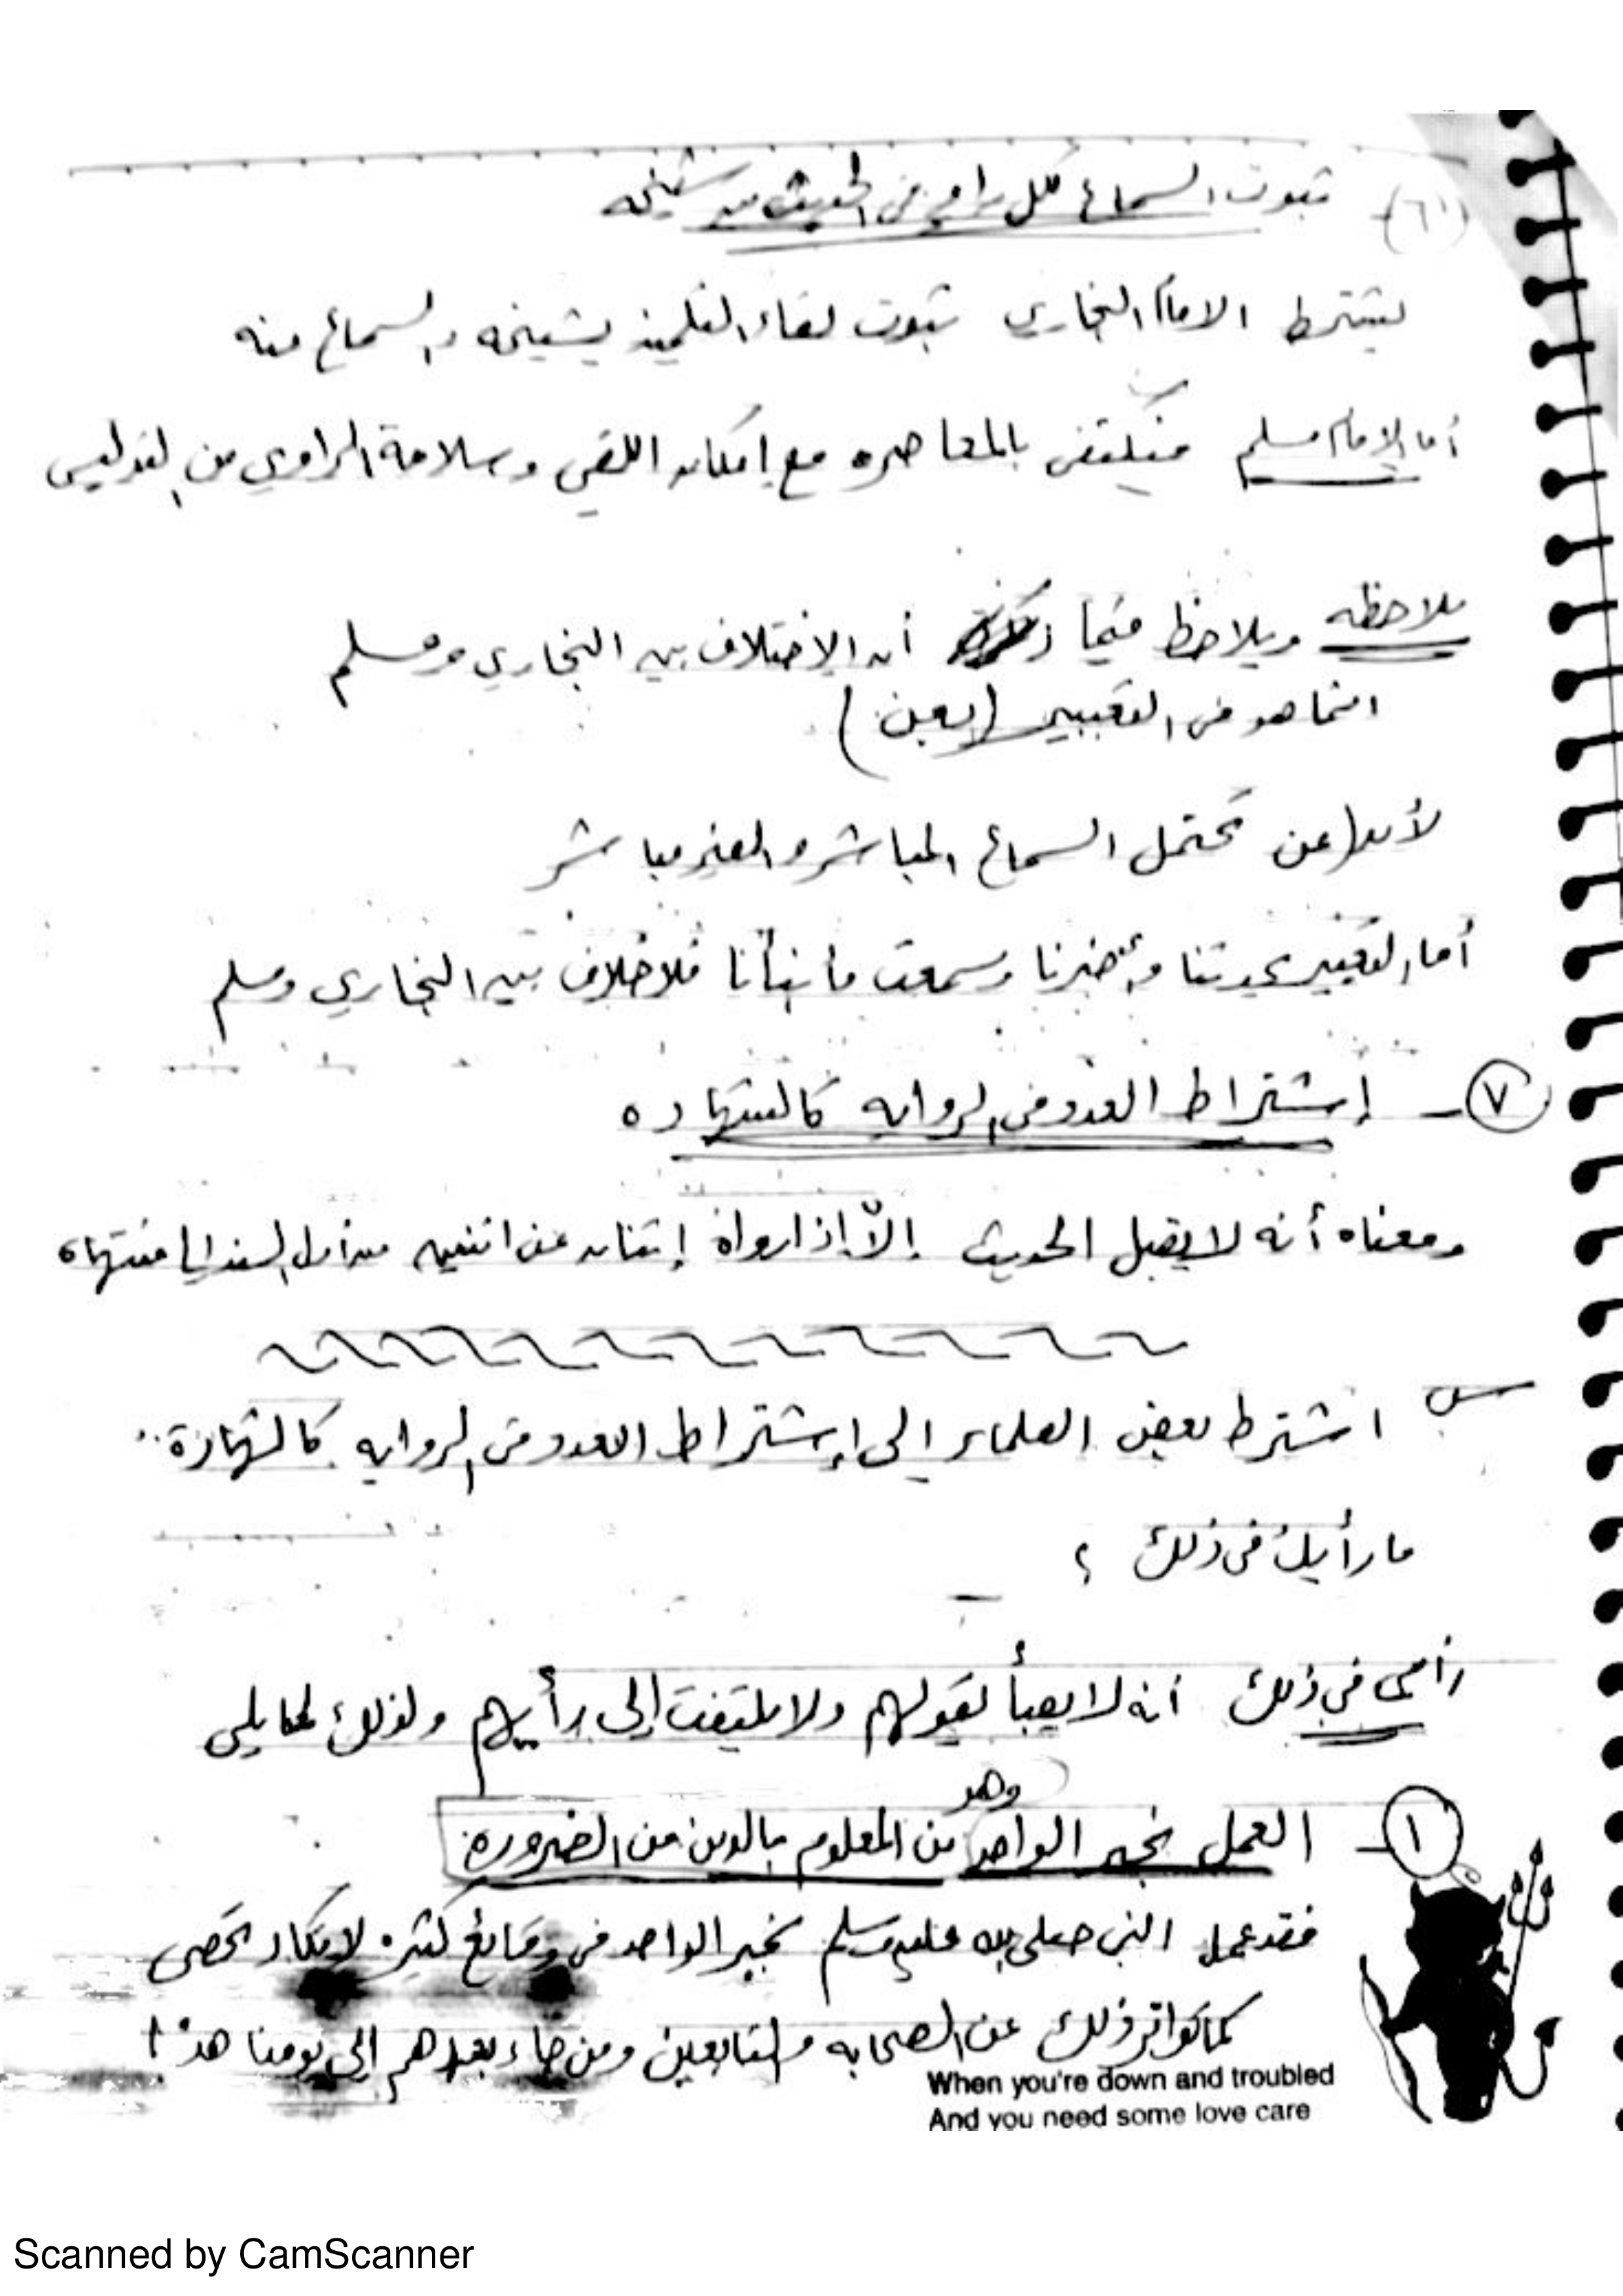 (٦) ثبوت السماع لكل راوي في الحديث من شيخه
يشترط الامام البخاري ثبوت لقاء التلميذ بشيخه والسماع منه
أما الإمام مسلم فيكتفي بالمعاصره مع إمكان اللقي وسلامة الراوي من التدليس
ملاحظه ويلاحظ فيما أن الإختلاف بين البخاري ومسلم
انما هو في التعبير (بعن)
لأن (عن تحتمل السماع المباشر والغير مباشر
أما التعبير بحدثنا وأخبرنا وسمعت وأنبأنا فلا خلاف بين البخاري ومسلم
٧ - إشتراط العدد في الروايه كالشهاده
ومعناه أنه لا يقبل الحديث إلاّ إذا رواة إثنان عن اثنين من أول السند إلى منتهاه
س اشترط بعض العلماء إلى إشتراط العدد في الروايه كالشهادة..
ما رأيك في ذلك ؟
رأيي في ذلك أنه لا يعبأ لقولهم ولا يلتفت إلى رأيهم ولذلك لما يلي
١ - العمل بخبر الواحد وهو من المعلوم بالدين من الضروره
فقد عمل النبي صلى الله عليه وسلم بخبر الواحد في وقائع كثيره لا تكاد تحصى
كما تواتر ذلك عن الصحابه والتابعين ومن جاء بعدهم إلى يومنا هذا
When you're down and troubled
And you need some love care
Scanned by CamScanner